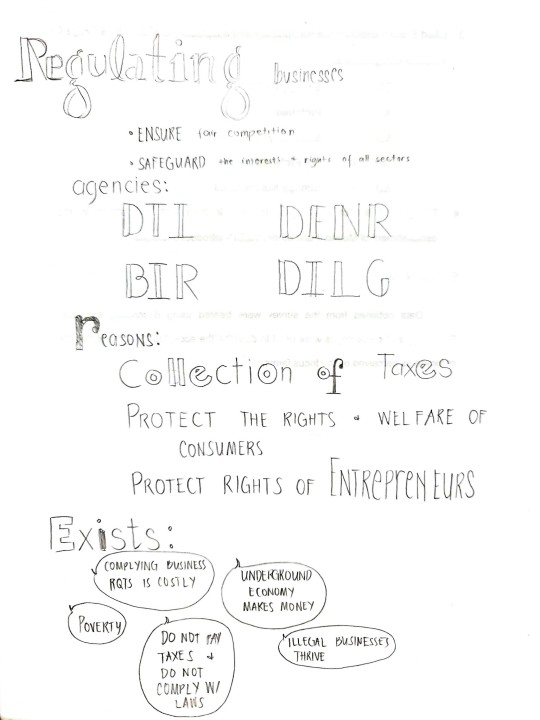 Regulating businesses
• ENSURE fair competition
• SAFEGUARD the interests + rights of all sectors
agencies:
DTI DENR
BIR DILG
reasons:
Collection of Taxes
PROTECT THE RIGHTS + WELFARE OF
CONSUMERS
PROTECT RIGHTS OF ENTREPRENEURS
Exists:
COMPLYING BUSINESS
RQTS IS COSTLY
UNDERGROUND
ECONOMY
MAKES MONEY
POVERTY
DO NOT PAY
TAXES +
DO NOT
COMPLY W/
LAWS
ILLEGAL BUSINESSES
THRIVE